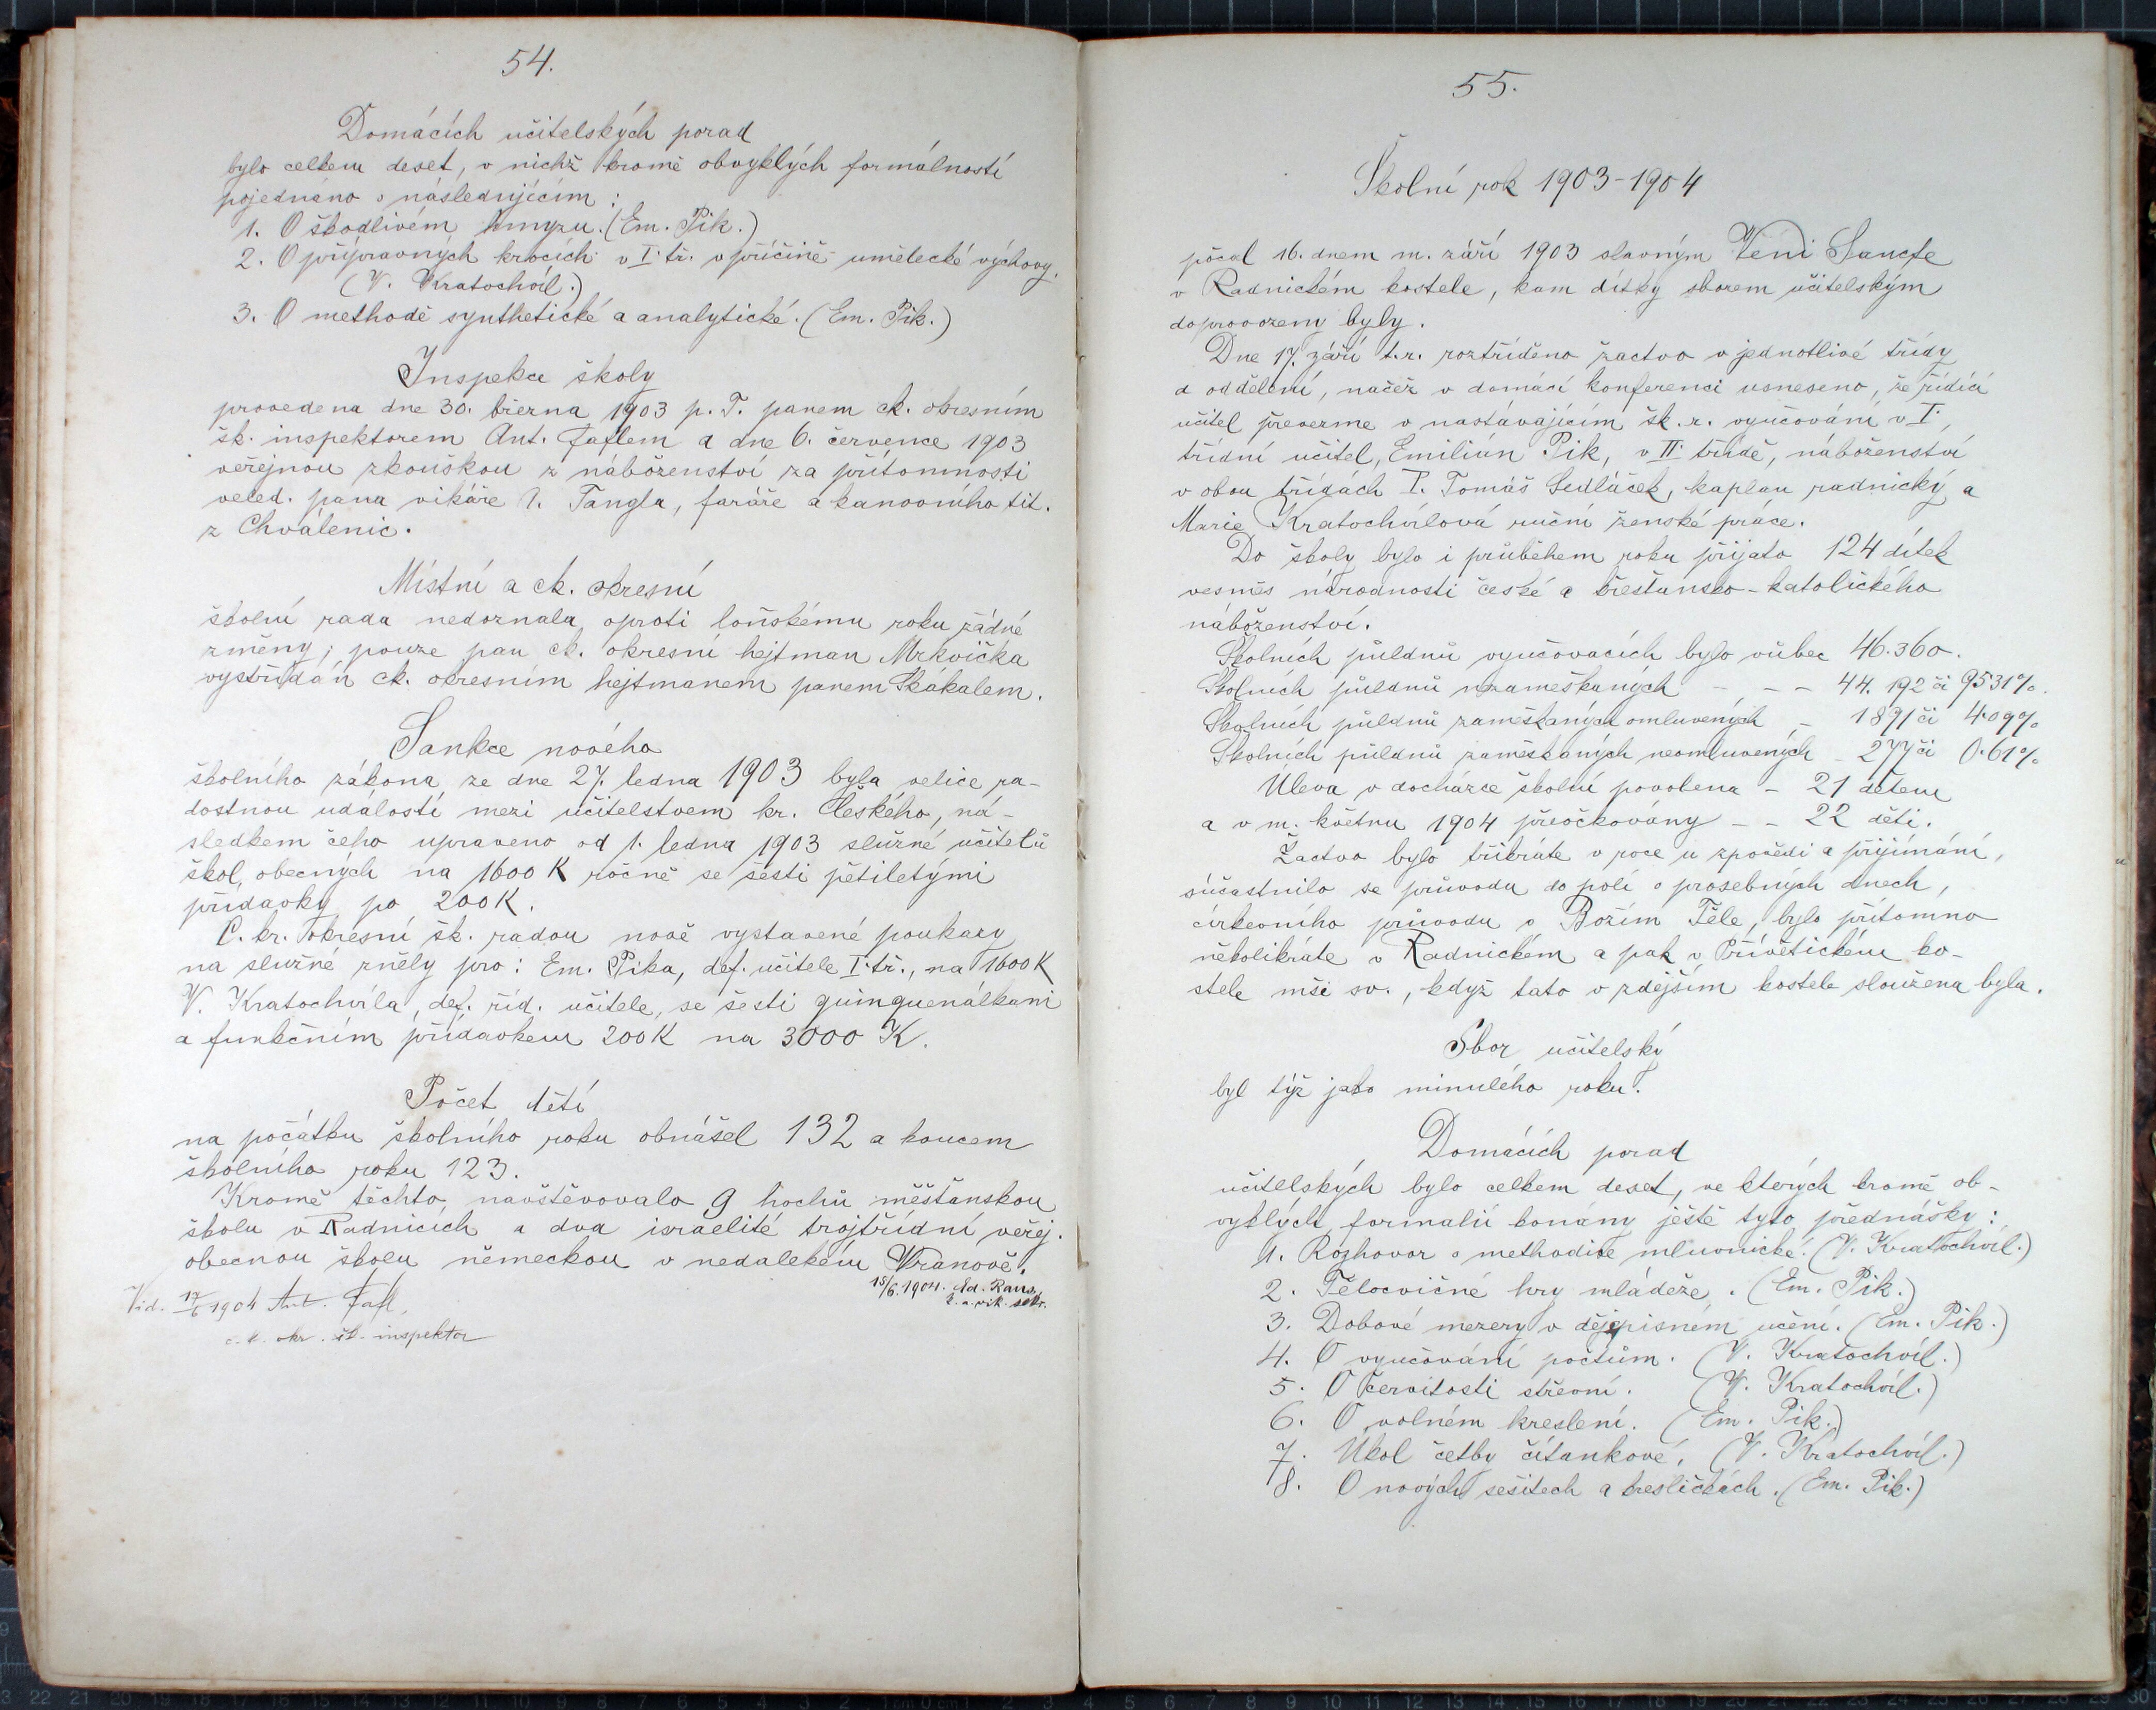 54.
Domácích učitelských porad
bylo celkem deset, v nichž kromě obvyklých formálností
pojednáno o následujícím:
1. O škodlivém hmyzu. (Em. Pik.)
2. O přípravných krocích v I. tř. v příčině umělecké výchovy.
(V. Kratochvíl.)
3. O methodě synthetické a analytické. (Em. Pik.)
Inspekce školy
provedena dne 30. března 1903 p. T. panem ck. okresním
šk. inspektorem Ant. Taflem a dne 6. července 1903
veřejnou zkouškou z náboženství za přítomnosti
veled. pana vikáře I. Tangla, faráře a kanovního tit.
z Chválenic.
Místní a ck. okresní
školní rada nedoznala oproti loňskému roku žádné
změny; pouze pan ck. okresní hejtman Mrkvička
vystřídán ck. okresním hejtmanem panem Skakalem.
Sankce nového
školního zákona ze dne 27. ledna 1903 byla velice ra-
dostnou událostí mezi učitelstvem kr. Českého, ná-
sledkem čeho upraveno od 1. ledna 1903 služné učitelů
škol obecných na 1600 K ročně se šesti pětiletými
přídavky po 200 K.
C. kr. okresní šk. radou nově vystavené poukazy
na služné zněly pro: Em. Pika, def. učitele I. tř., na 1600 K
V. Kratochvíla, def. říd. učitele, se šesti quinquenálkami
a funkčním přídavkem 200 K na 3000 K.
Počet dětí
na počátku školního roku obnášel 132 a koncem
školního roku 123.
Kromě těchto navštěvovalo 9 hochů měšťanskou
školu v Radnicích a dva israelité trojtřídní veřej.
obecnou školu německou v nedalekém Vranově.
15/6. 1904. Ed. Raus,
b. a. vik. sekr.
Vid. 17/6 1904 Ant. Tafl,
c. k. okr. šk. inspektor
55.
Školní rok 1903-1904
počal 16. dnem m. září 1903 slavným Veni Sancte
v Radnickém kostele, kam dítky sborem učitelským
doprovozeny byly.
Dne 17. září t. r. roztříděno žactvo v jednotlivé třídy
a oddělení, načež v domácí konferenci usneseno, že řídící
učitel převezme v nastávajícím šk. r. vyučování v I.,
třídní učitel, Emilián Pik, v II. třídě, náboženství
v obou třídách P. Tomáš Sedláček, kaplan radnický a
Marie Kratochvílová ruční ženské práce.
Do školy bylo i průběhem roku přijato 124 dítek
vesměs národnosti české a křesťansko-katolického
náboženství.
Školních půldnů vyučovacích bylo vůbec 46.360.
Školních půldnů nezameškaných - - - 44.192 či 95.31%.
Školních půldnů zameškaných omluvených - 1891 či 4.09%
Školních půldnů zameškaných neomluvených - 277 či 0.61%
Úleva v docházce školní povolena - 21 dětem
a v m. květnu 1904 přeočkovány - - 22 děti.
Žactvo bylo třikráte v roce u zpovědi a přijímání,
súčastnilo se průvodu do polí o prosebných dnech,
církevního průvodu o Božím Těle, bylo přítomno
několikráte v Radnickém a pak v Přívětickém ko-
stele mši sv., když tato v zdejším kostele sloužena byla.
Sbor učitelský
byl týž jako minulého roku.
Domácích porad
učitelských bylo celkem deset, ve kterých kromě ob-
vyklých formalií konány ještě tyto přednášky:
1. Rozhovor o methodice mluvnické. (V. Kratochvíl.)
2. Tělocvičné hry mládeže. (Em. Pik.)
3. Dobové mezery v dějepisném učení. (Em. Pik.)
4. O vyučování počtům. (V. Kratochvíl.)
5. O červitosti střevní. (V. Kratochvíl.)
6. O volném kreslení. (Em. Pik.)
7. Úkol četby čítankové. (V. Kratochvíl.)
8. O nových sešitech a kresličkách. (Em. Pik.)